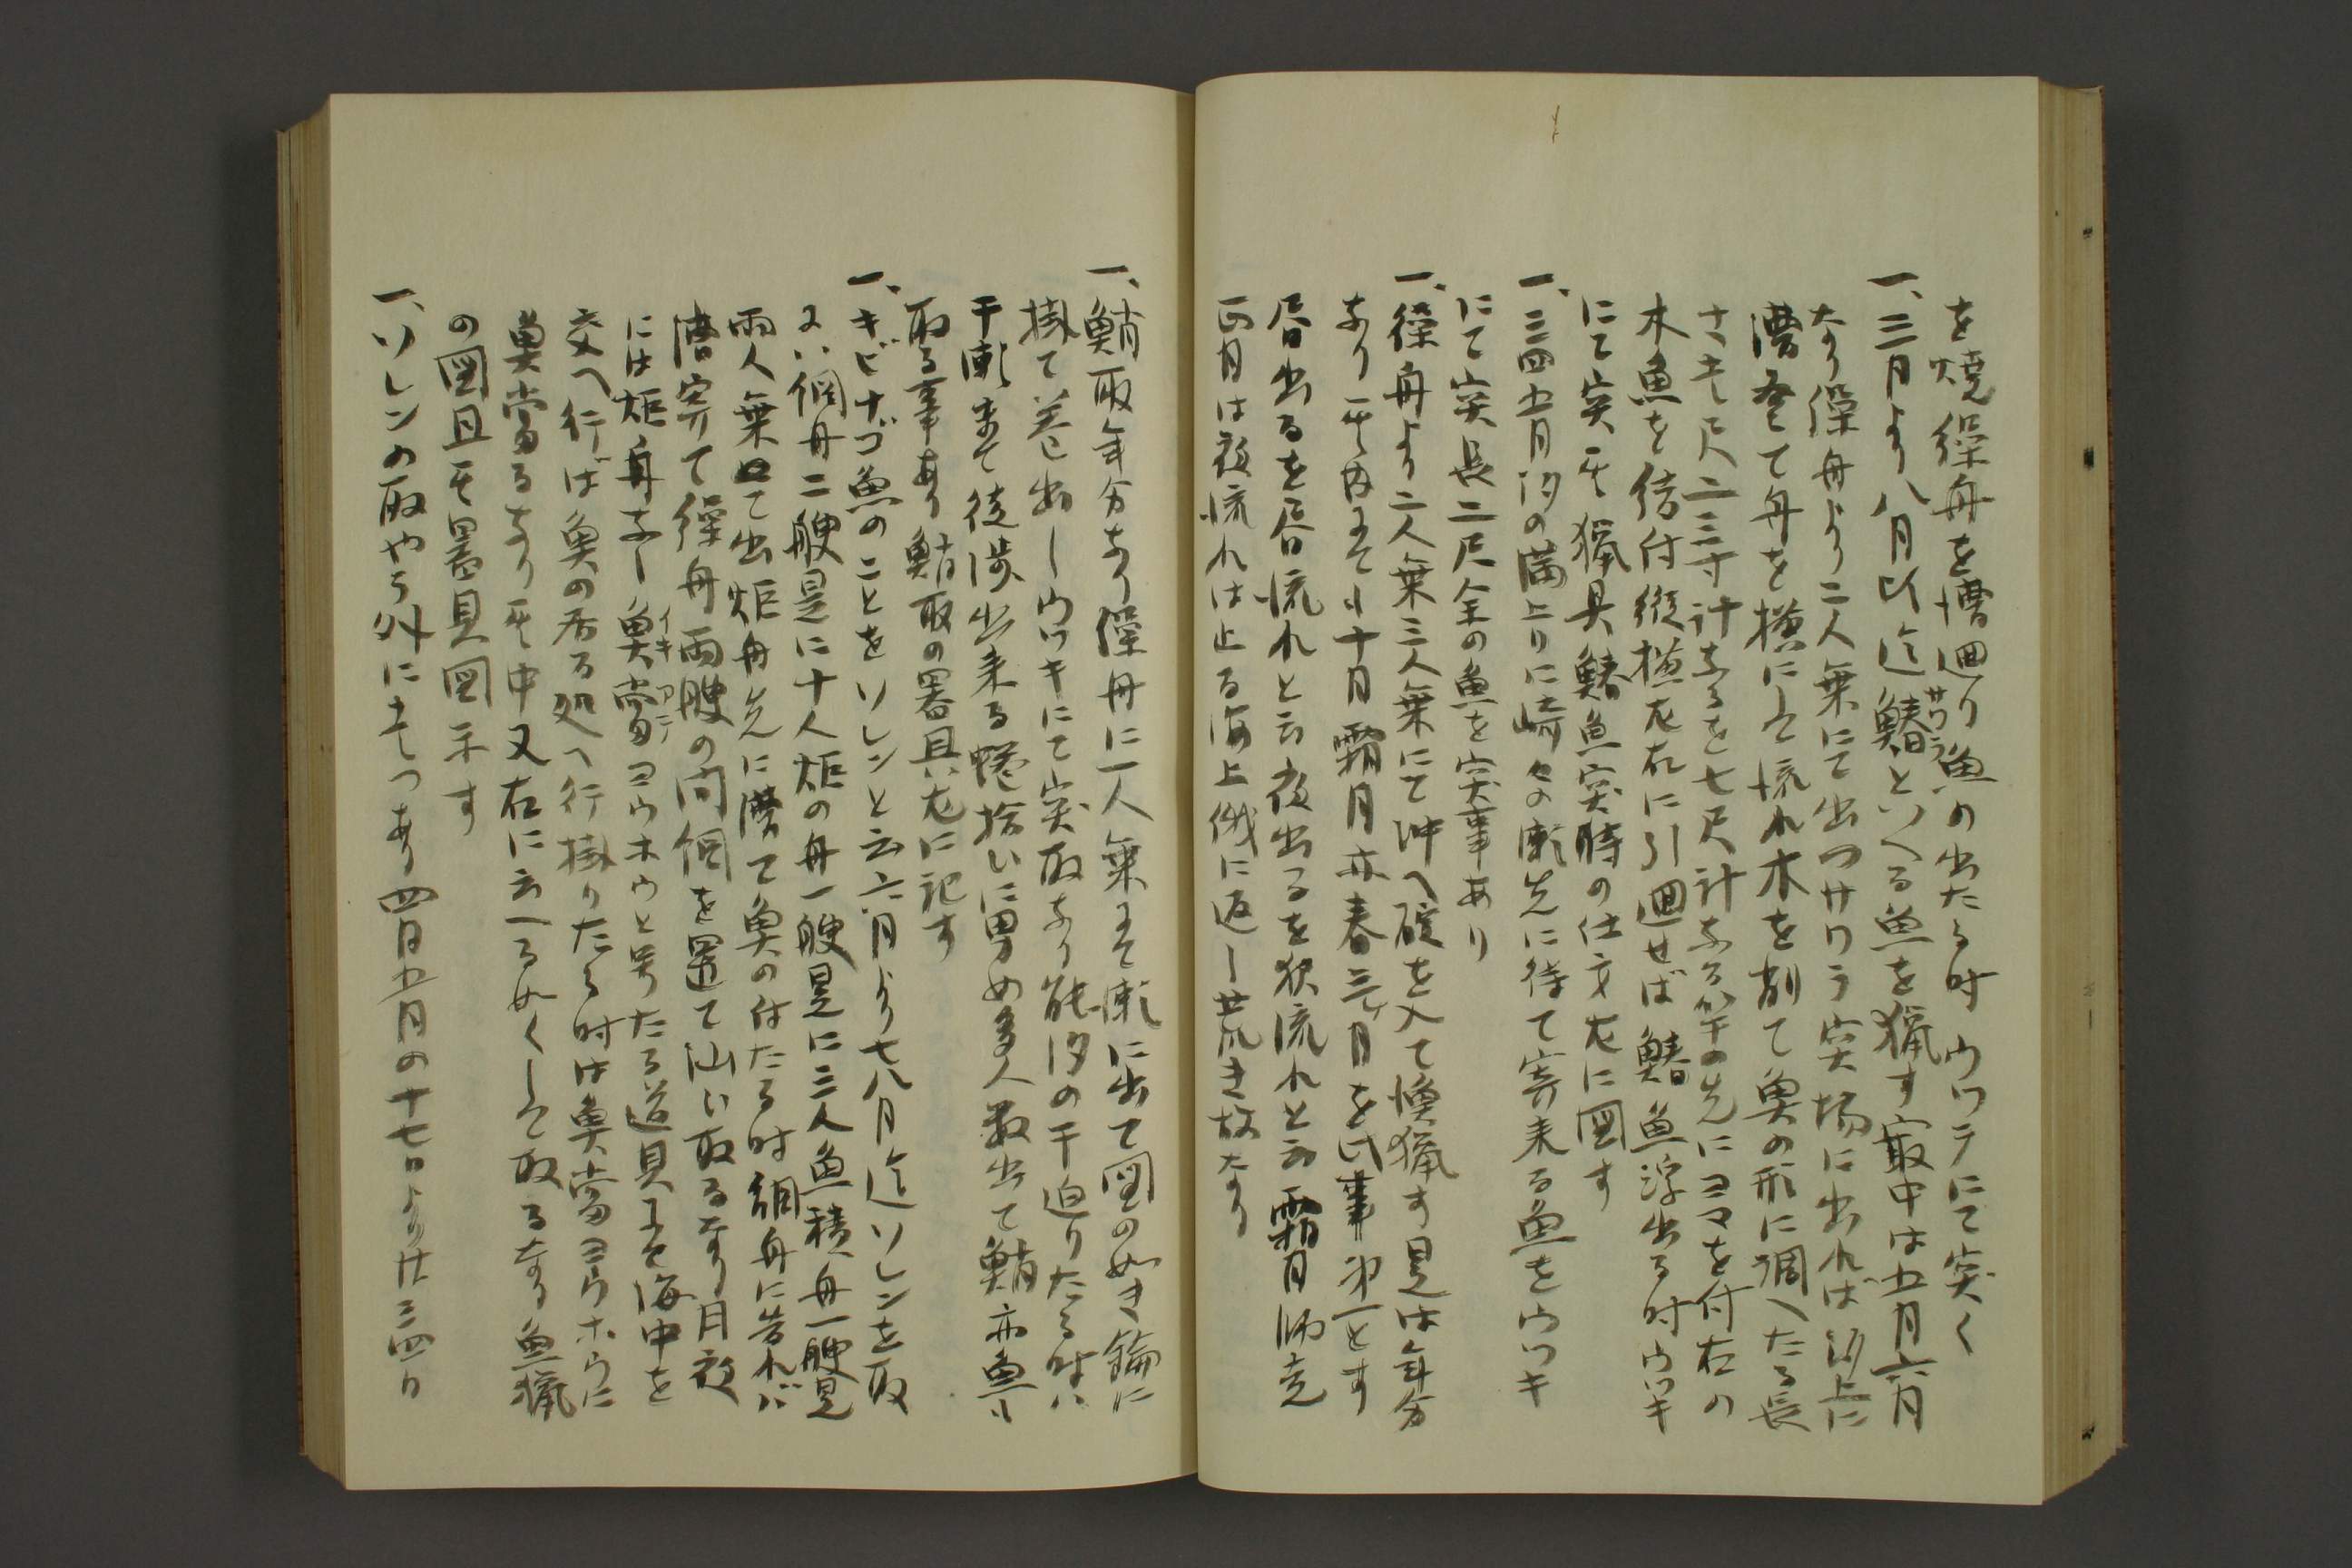 を焼繰舟を漕廻り魚の出たる時ウツテにて突く
一、三月より八月比迄鰆サワラといへる魚を猟す最中は五月六月
なり繰舟より二人乗にて出つサワラ突場に出れば汐上に
漕登て舟を横にして流れ木を削て魚の形に調へたる長
さ壱尺二三寸計なるを七尺計なる竿の先にヨマを付右の
木魚を結付縦横左右に引廻せば鰆魚浮出る時ウツキ
にて突其猟具鰆魚突時の仕方左に図す
一、三四五月汐の満上りに崎々の瀬先に待て寄来る魚をウツキ
にて突長二尺余の魚を突事あり
一、繰舟より二人乗三人乗にて沖へ碇を入て漁猟す是は年分
なり其内にて十月霜月亦春三月を此事第一とす
昼出るを昼流れと云夜出るを夜流れと云霜月師走
正月は夜流れは止る海上俄に返し荒き故なり
一、鮹取年分なり繰舟に一人乗にて瀬に出て図の如き鑰に
掛て巻出しウツキにて突取なり能汐の干迫りたる時ハ
干瀬まて徒渉出来る蜷捨いに男女多人数出て鮹亦魚も
取る事あり鮹取の畧具左に記す
一、キビナゴ魚のことをソレンと云六月より七八月迄ソレンを取
には網舟二艘是に十人炬の舟一艘是に三人魚積舟一艘是
両人乗て出炬舟先に漕て魚の付たる時網舟に告れバ
漕寄て繰舟両艘の間網を置て汕い取るなり月夜
には炬舟なし魚當イキアテヨウホウと号たる道具にて海中を
交へ行ば魚の居る処へ行掛りたる時は魚當ヨウホウに
魚當るなり其中又右に云へる如くして取るなり魚猟
の図且其畧具図示す
一、ソレンの取やう外に壱つあり四月五月の十七日より廿三四日